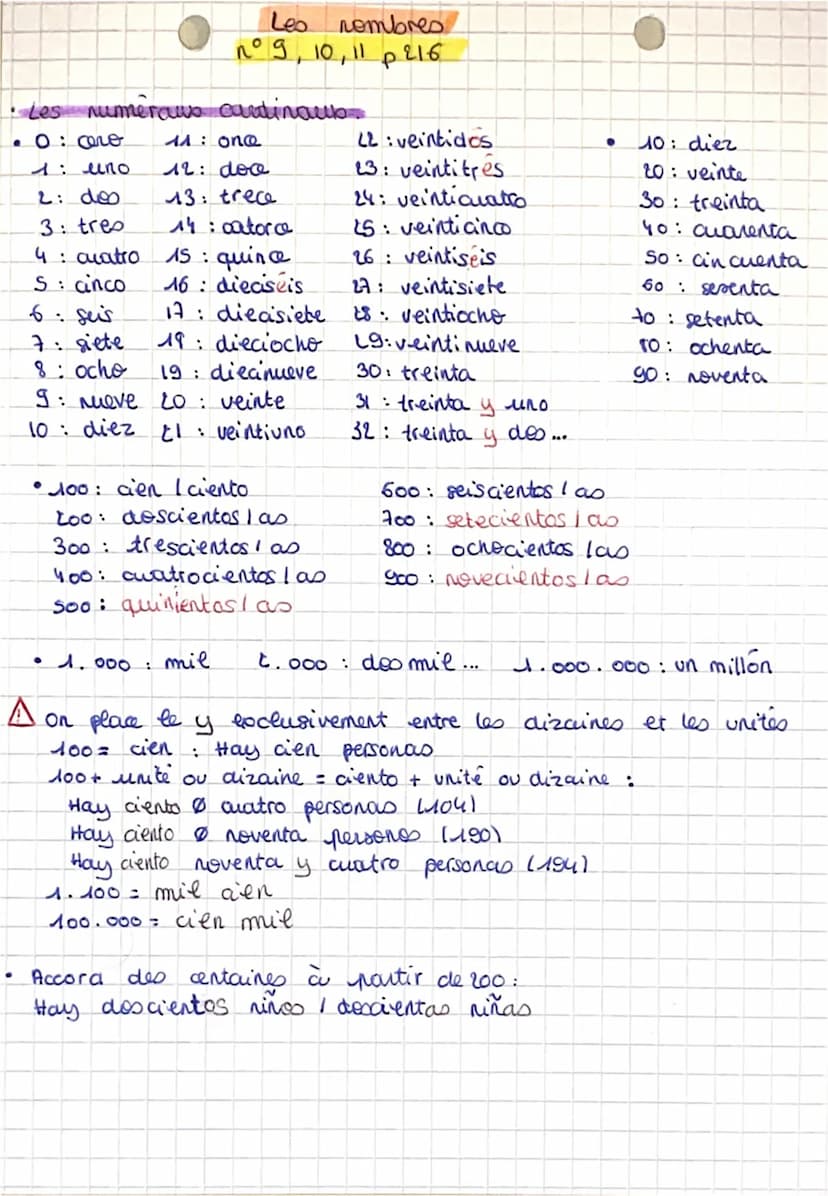 Les nombres
n° 9, 10, 11 p 216
• Les numéraux cardinaux.
• 0 : cero 11 : once 22 : veintidós • 10 : diez
1 : uno 12 : doce 23 : veintitrés 20 : veinte
2 : dos 13 : trece 24 : veinticuatro 30 : treinta
3 : tres 14 : catorce 25 : veinticinco 40 : cuarenta
4 : cuatro 15 : quince 26 : veintiséis 50 : cincuenta
5 : cinco 16 : dieciséis 27 : veintisiete 60 : sesenta
6 : seis 17 : diecisiete 28 : veintiocho 70 : setenta
7 : siete 18 : dieciocho 29 : veintinueve 80 : ochenta
8 : ocho 19 : diecinueve 30 : treinta 90 : noventa
9 : nueve 20 : veinte 31 : treinta y uno
10 : diez 21 : veintiuno 32 : treinta y dos ...
• 100 : cien / ciento 600 : seiscientos / as
200 : doscientos / as 700 : setecientos / as
300 : trescientos / as 800 : ochocientos / as
400 : cuatrocientos / as 900 : novecientos / as
500 : quinientos / as
• 1.000 : mil 2.000 : dos mil ... 1.000.000 : un millón
⚠ On place le y exclusivement entre les dizaines et les unités
100 = cien : Hay cien personas
100 + unité ou dizaine = ciento + unité ou dizaine :
Hay ciento Ø cuatro personas (104)
Hay ciento Ø noventa personas (190)
Hay ciento noventa y cuatro personas (194)
1.100 = mil cien
100.000 = cien mil
• Accord des centaines à partir de 200 :
Hay doscientos niños / doscientas niñas